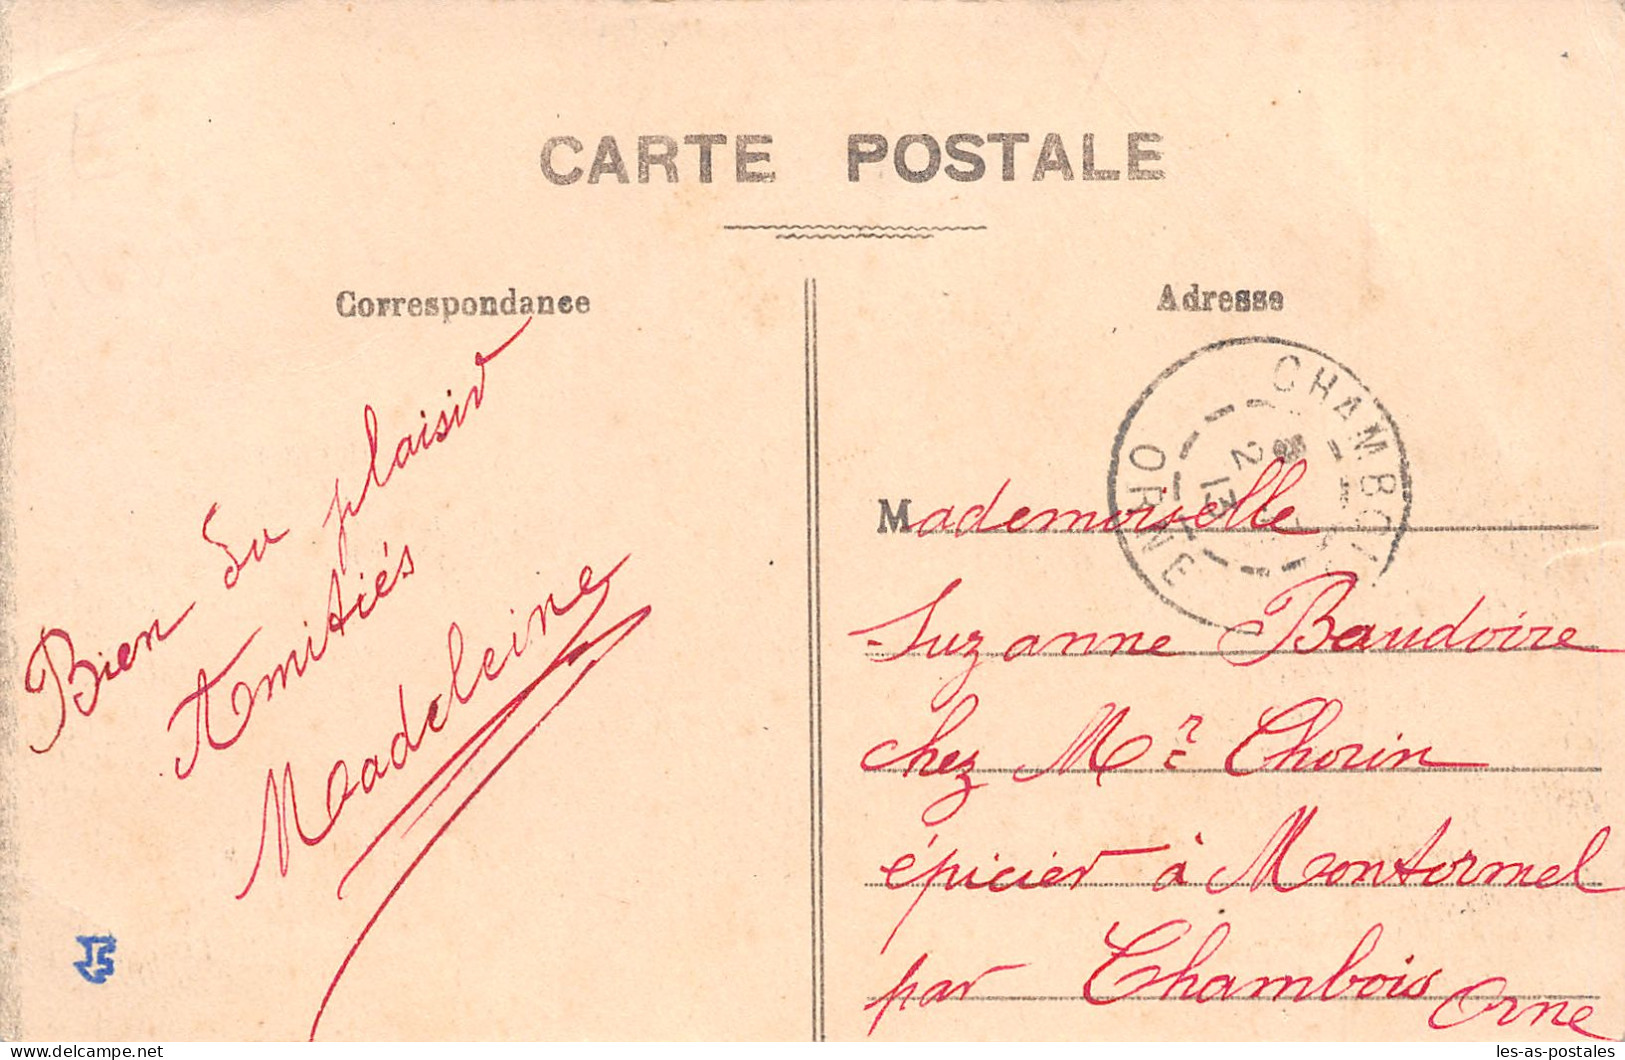 CARTE POSTALE
Correspondance
Bien du plaisir
Amitiés
Madeleine
Adresse
CHAMBOI
ORNE
2
13
Mademoiselle
Suzanne Baudoire
chez Mr Chorin
épicier à Montormel
par Chambois
Orne
les-as-postales